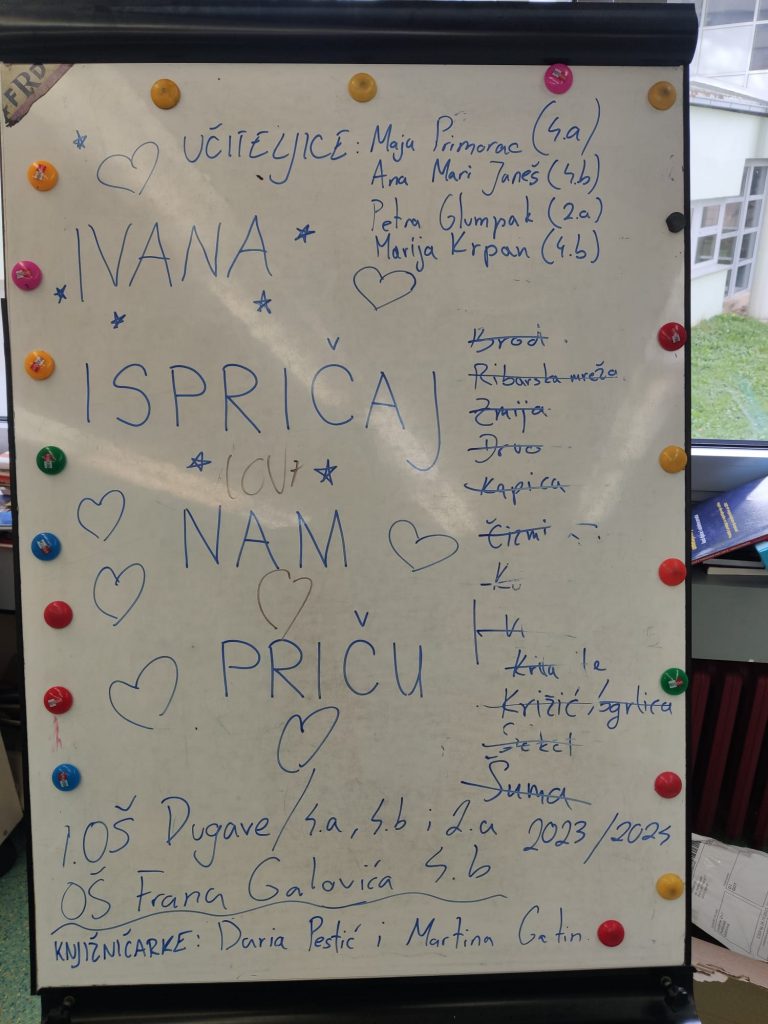 UČITELJICE: Maja Primorac (4.a)
Ana Mari Janeš (4.b)
Petra Glumpak (2.a)
Marija Krpan (4.b)
IVANA
ISPRIČAJ
NAM
PRIČU
Brod
Ribarska mreža
Zmija
Drvo
Kapica
Križić/ogrlica
Šuma
1.OŠ Dugave/4.a, 4.b i 2.a 2023/2024
OŠ Frana Galovića 4.b
KNJIŽNIČARKE: Daria Pestić i Martina Gatin